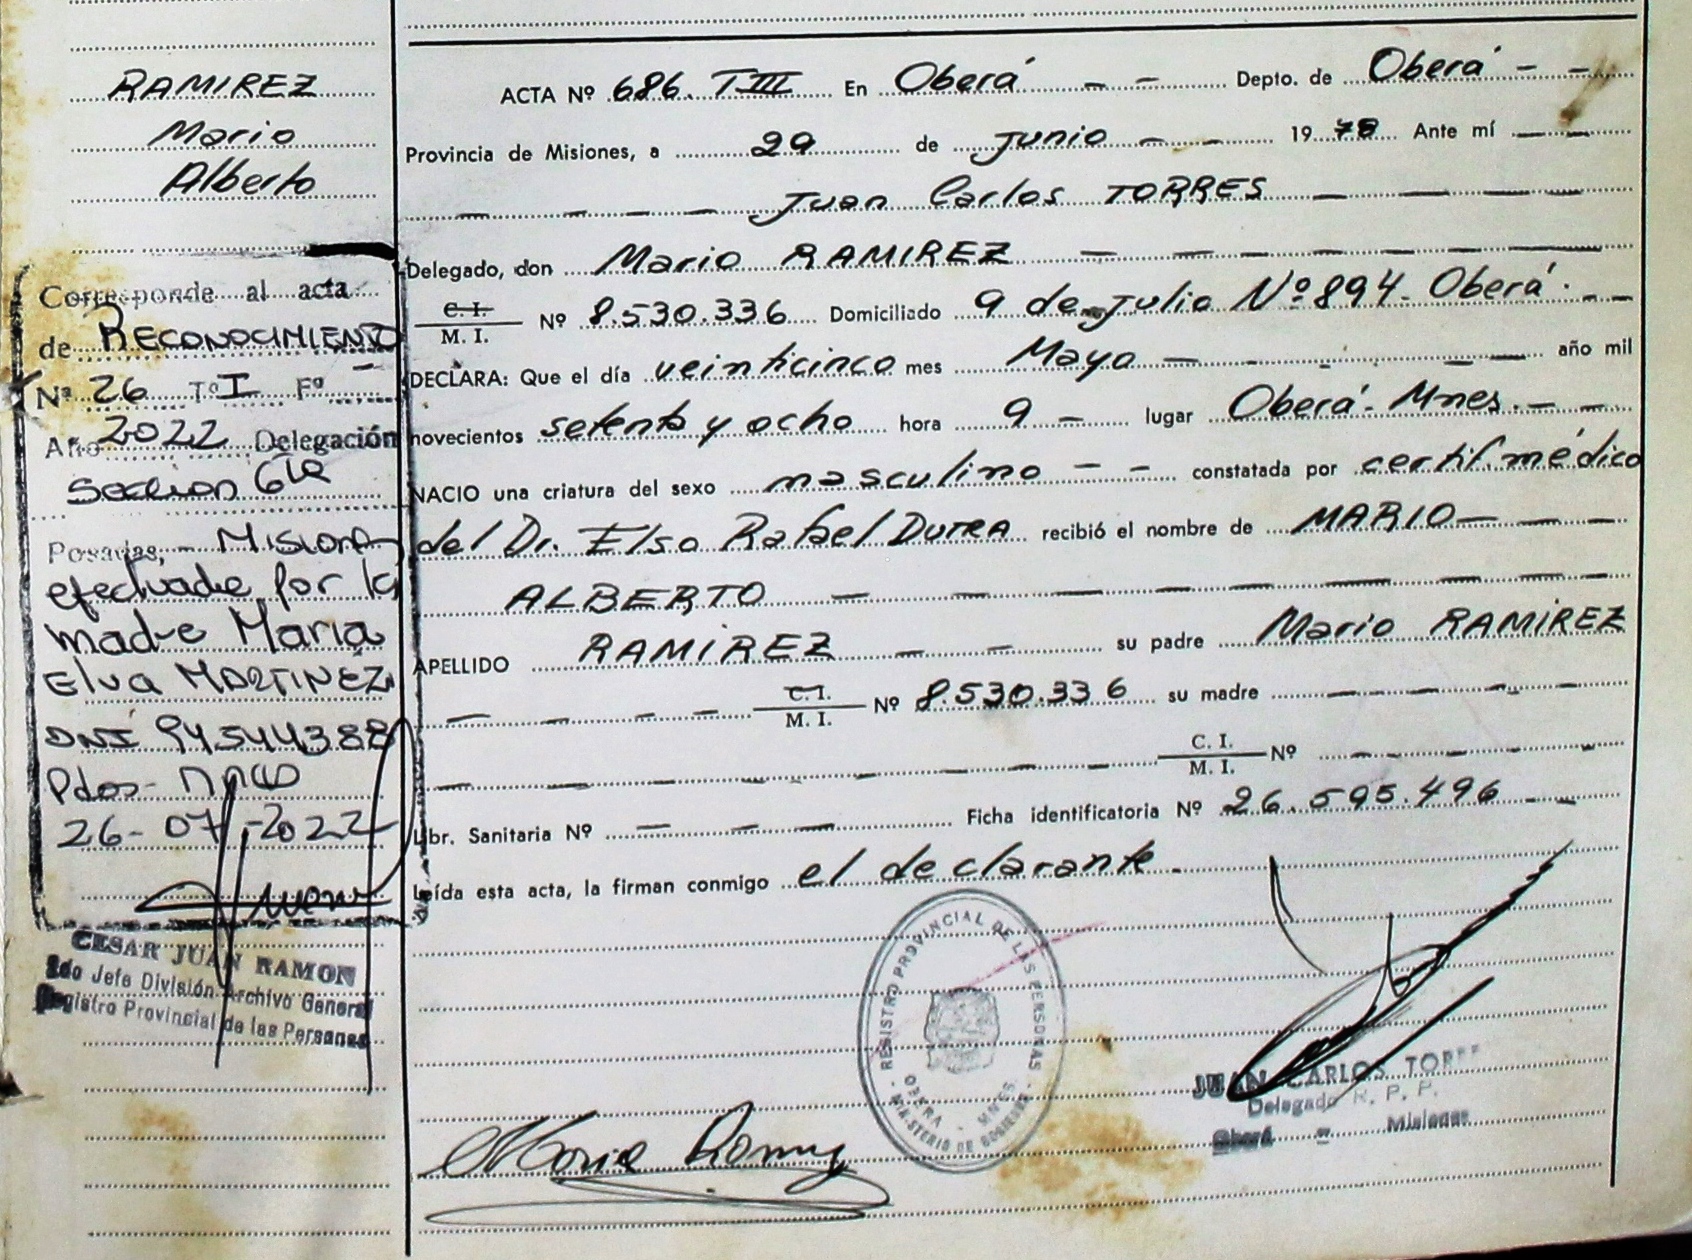 RAMIREZ
Mario
Alberto
Corresponde al acta
de RECONOCIMIENTO
Nº 26 Tº I Fº -
Año 2022 Delegación
Sección 6ta
Posadas, - Misiones
efectuado por la
madre Maria
Elva MARTINEZ
DNI 94544388
Pdas- Mnes
26-07-2022
CESAR JUAN RAMON
2do Jefe División Archivo General
Registro Provincial de las Personas
ACTA Nº 686. T III En Oberá - - Depto. de Oberá - -
Provincia de Misiones, a 29 de junio - - 19 78 Ante mí - -
- - - - Juan Carlos TORRES - - - -
Delegado, don Mario RAMIREZ - - - - - -
C. I.
M. I. Nº 8.530.336 Domiciliado 9 de julio Nº 894. Oberá. - -
DECLARA: Que el día veinticinco mes Mayo - - - - - año mil
novecientos setenta y ocho hora 9 - lugar Oberá- Mnes. - -
NACIO una criatura del sexo masculino - - constatada por certif. médico
del Dr. Elso Rafael DUTRA recibió el nombre de MARIO - - -
ALBERTO - - - - - - - -
APELLIDO RAMIREZ - - su padre Mario RAMIREZ
- - - - - C. I.
M. I. Nº 8.530.336 su madre - - - - - -
- - - - - - - - - C. I.
M. I. Nº - - - - -
Libr. Sanitaria Nº - - - Ficha identificatoria Nº 26.595.496 - -
Leída esta acta, la firman conmigo el declarante.
REGISTRO PROVINCIAL DE LAS PERSONAS
OBERA - MNES.
MINISTERIO DE GOBIERNO
JUAN CARLOS TORRES
Delegado R. P. P.
Oberá - Misiones